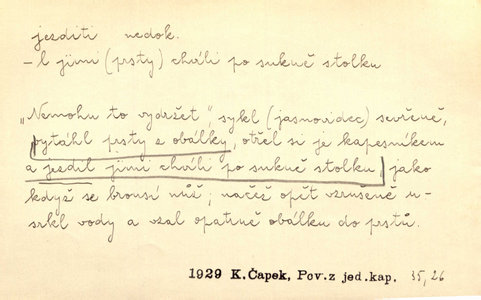 jezditi nedok.
– l jimi (prsty) chvíli po sukně stolku
„Nemohu to vydržet" sykl (jasnovidec) sevřeně,
vytáhl prsty z obálky, otřel si je kapesníkem
a jezdil jimi chvíli po sukně stolku, jako
když se brousí nůž; načež opět vzrušeně u-
srkl vody a vzal opatrně obálku do prstů.
1929 K.Čapek, Pov.z jed.kap. 35,26